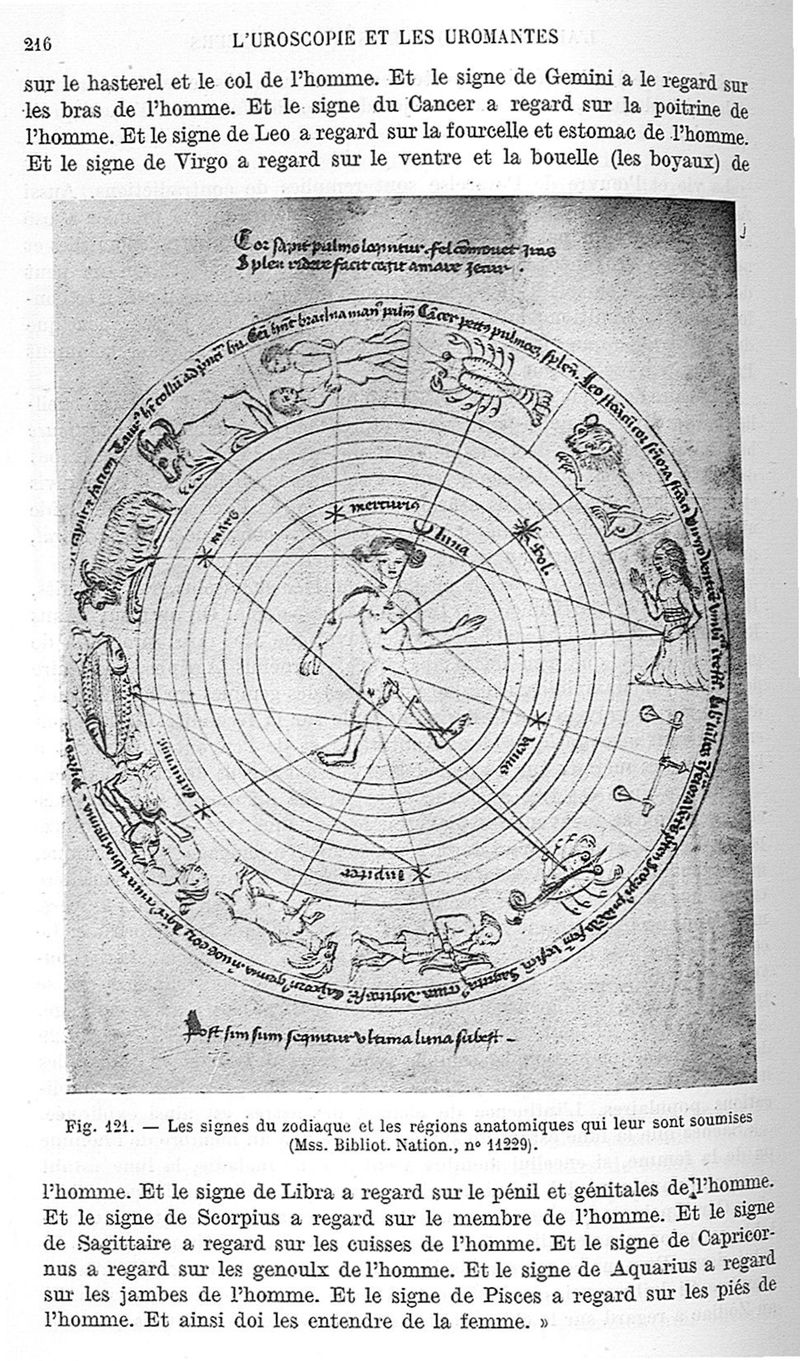 216
L'UROSCOPIE ET LES UROMANTES
sur le hasterel et le col de l'homme. Et le signe de Gemini a le regard sur
les bras de l'homme. Et le signe du Cancer a regard sur la poitrine de
l'homme. Et le signe de Leo a regard sur la fourcelle et estomac de l'homme.
Et le signe de Virgo a regard sur le ventre et la bouelle (les boyaux) de
Cor sapit pulmo loquitur fel comouet iras
Splen ridere facit cogit amare iecur.
mercurius
luna
sol.
mars
venus
saturnus
iupiter
Post sim sum sequitur ultima luna subest
Fig. 121. — Les signes du zodiaque et les régions anatomiques qui leur sont soumises
(Mss. Bibliot. Nation., nº 11229).
l'homme. Et le signe de Libra a regard sur le pénil et génitales de l'homme.
Et le signe de Scorpius a regard sur le membre de l'homme. Et le signe
de Sagittaire a regard sur les cuisses de l'homme. Et le signe de Capricor-
nus a regard sur les genoulx de l'homme. Et le signe de Aquarius a regard
sur les jambes de l'homme. Et le signe de Pisces a regard sur les piés de
l'homme. Et ainsi doi les entendre de la femme. »